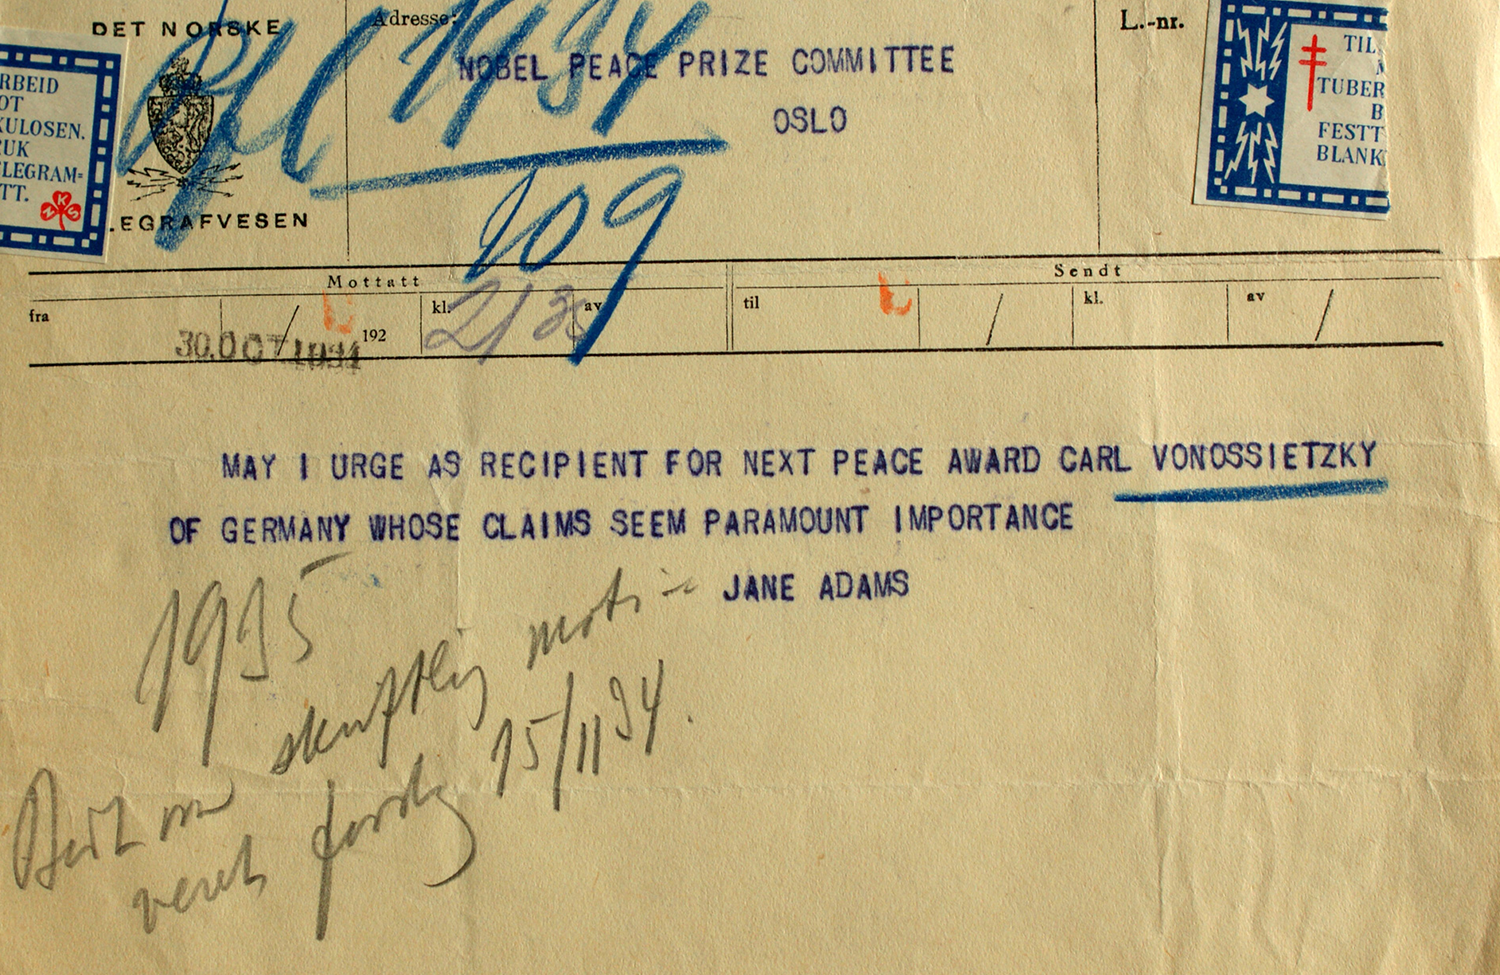 DET NORSKE
Adresse:
L.-nr.
NOBEL PEACE PRIZE COMMITTEE
OSLO
1934
209
RBEID
OT
KULOSEN.
UK
LEGRAM=
TT.
N K S
.EGRAFVESEN
TIL
TUBER
B
FESTT
BLANK
Mottatt
Sendt
fra
/
192
kl.
21 35
av
til
/
kl.
av
/
30.OCT 1934
MAY I URGE AS RECIPIENT FOR NEXT PEACE AWARD CARL VONOSSIETZKY
OF GERMANY WHOSE CLAIMS SEEM PARAMOUNT IMPORTANCE
JANE ADAMS
1935
skriftlig
15/11 34.